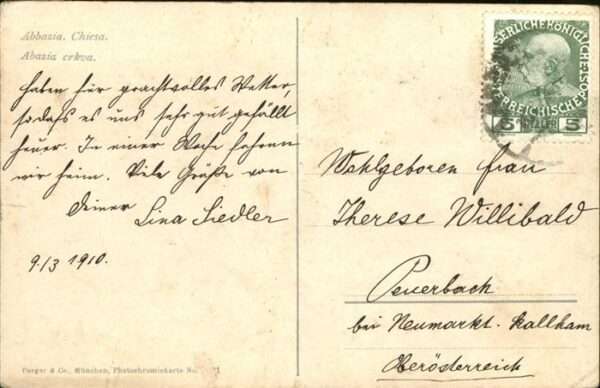 Abbazia. Chiesa.
Abazia crkva.
haben für prachtvolles Wetter,
sodaß es uns sehr gut gefällt
heuer. In einer Woche fahren
wir heim. Viele Grüße von
Deiner Lina Siedler
9./3 1910.
Purger & Co., München, Photochromiekarte No.
KAISERLICHEKÖNIGLICHE ÖSTERREICHISCHE POST
5 5
Wohlgeboren Frau
Therese Willibald
Peuerbach
bei Neumarkt-Kallham
Oberösterreich